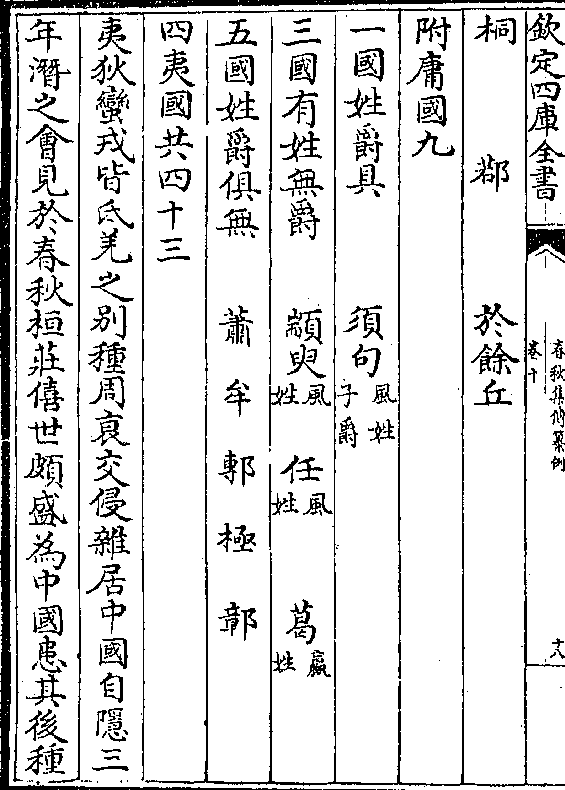 欽定四庫全書
春秋集傳纂例
卷十
十八
桐 鄀 於餘丘
附庸國九
一國姓爵具 須句風姓子爵
三國有姓無爵 顓臾風姓 任風姓 葛嬴姓
五國姓爵俱無 蕭 牟 鄟 極 鄣
四夷國共四十三
夷狄蠻戎皆氐羌之别種周衰交侵雜居中國自隱三
年潛之會見於春秋桓莊僖世頗盛為中國患其後種